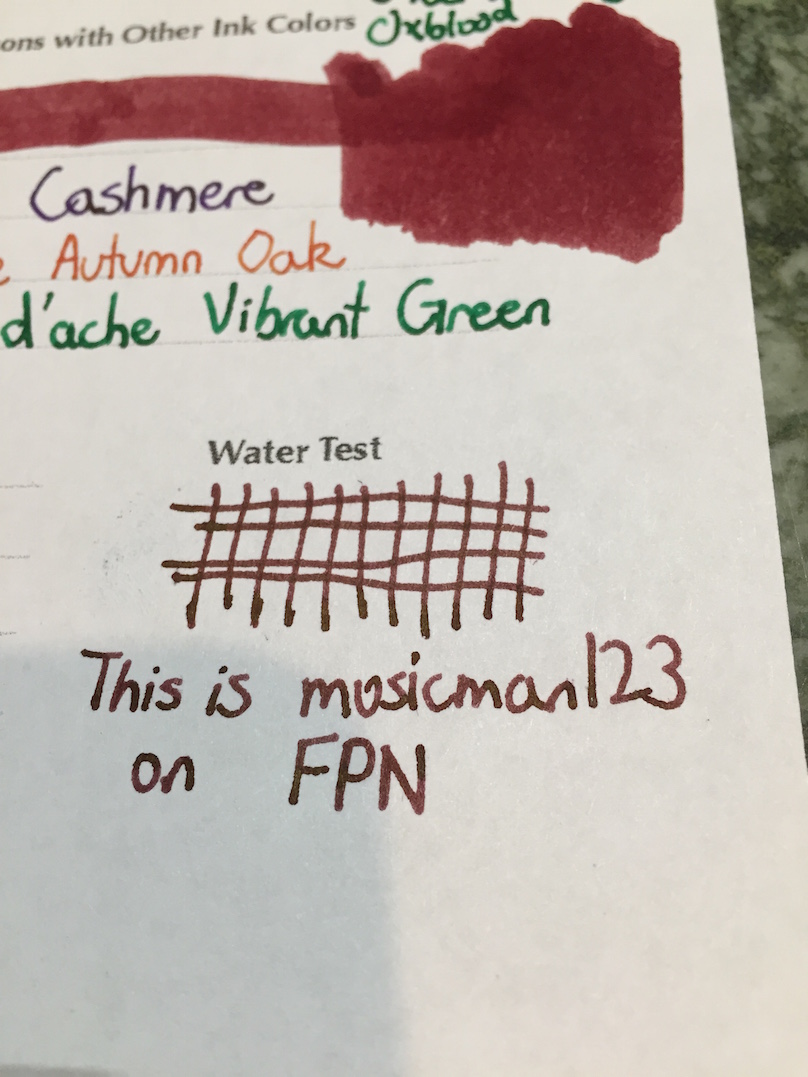 ons with Other Ink Colors
Oxblood
Cashmere
Autumn Oak
d'ache Vibrant Green
Water Test
This is musicman123
on FPN